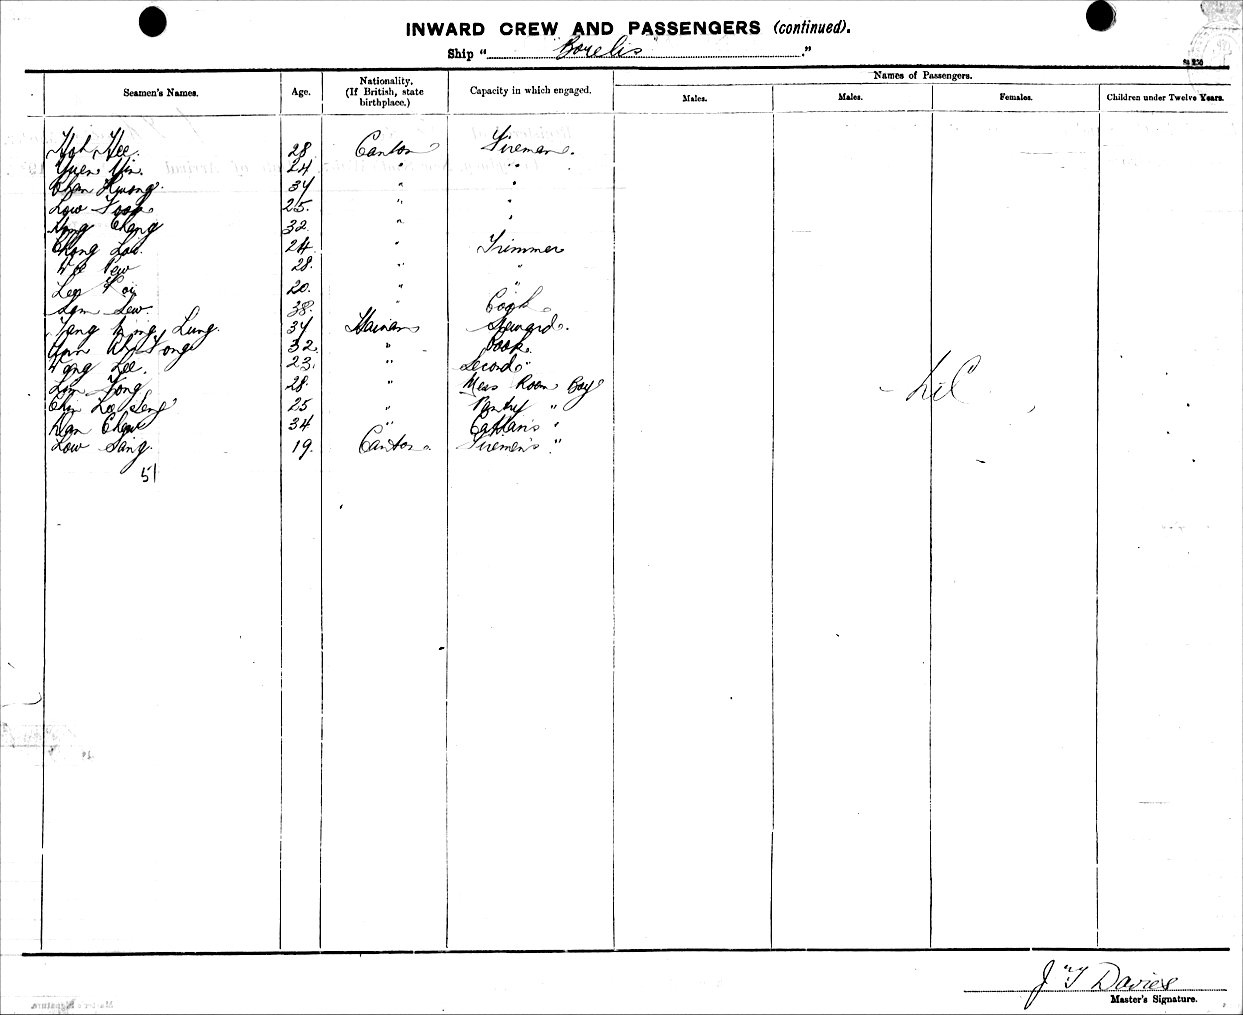 INWARD CREW AND PASSENGERS (continued).
Ship "Borelis."
Seamen's Names. Age. Nationality. (If British, state birthplace.) Capacity in which engaged. Names of Passengers.
Males. Males. Females. Children under Twelve Years.
Hoh Hee. 28 Canton Fireman.
Yuen Yin. 24 " "
Chan Kwong. 34 " "
Low Fook 25. " "
Hong Cheng 32. " "
Chong Lai. 24 " Trimmer
Pew 28. " "
Lee Koi 20. " "
Lam Lew. 38. " Cook
Tang Lung. 34 Hainan Steward.
Ah Fong 32 " Cook
Lee. 23. " Second "
Lim Fong 28. " Mess Room Boy
Chin Lee Seng 25 " Pantry "
Chew 34 " Captain's "
Low Sang. 19. Canton Firemen's "
51
Nil
J T Davies
Master's Signature.